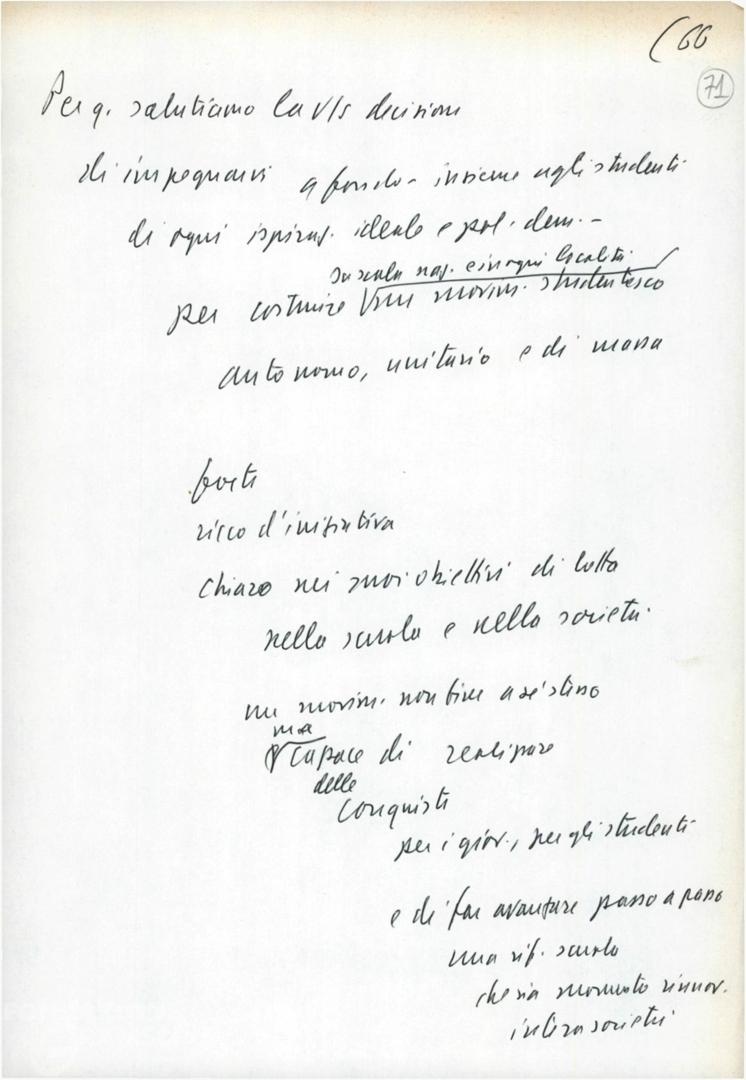 (66
71
Per q. salutiamo la v/s decisione
di impegnarvi a fondo - insieme agli studenti
di ogni ispiraz. ideale e pol. dem. -
su scala naz. e in ogni località
per costruire un movim. studentesco
autonomo, unitario e di massa
forte
ricco d'iniziativa
chiaro nei suoi obiettivi di lotta
nella scuola e nella società.
un movim. non fine a sé stesso
ma
capace di realizzare
delle
conquiste
per i giov., per gli studenti
e di far avanzare passo a passo
una rif. scuola
che sia momento rinnov.
intera società